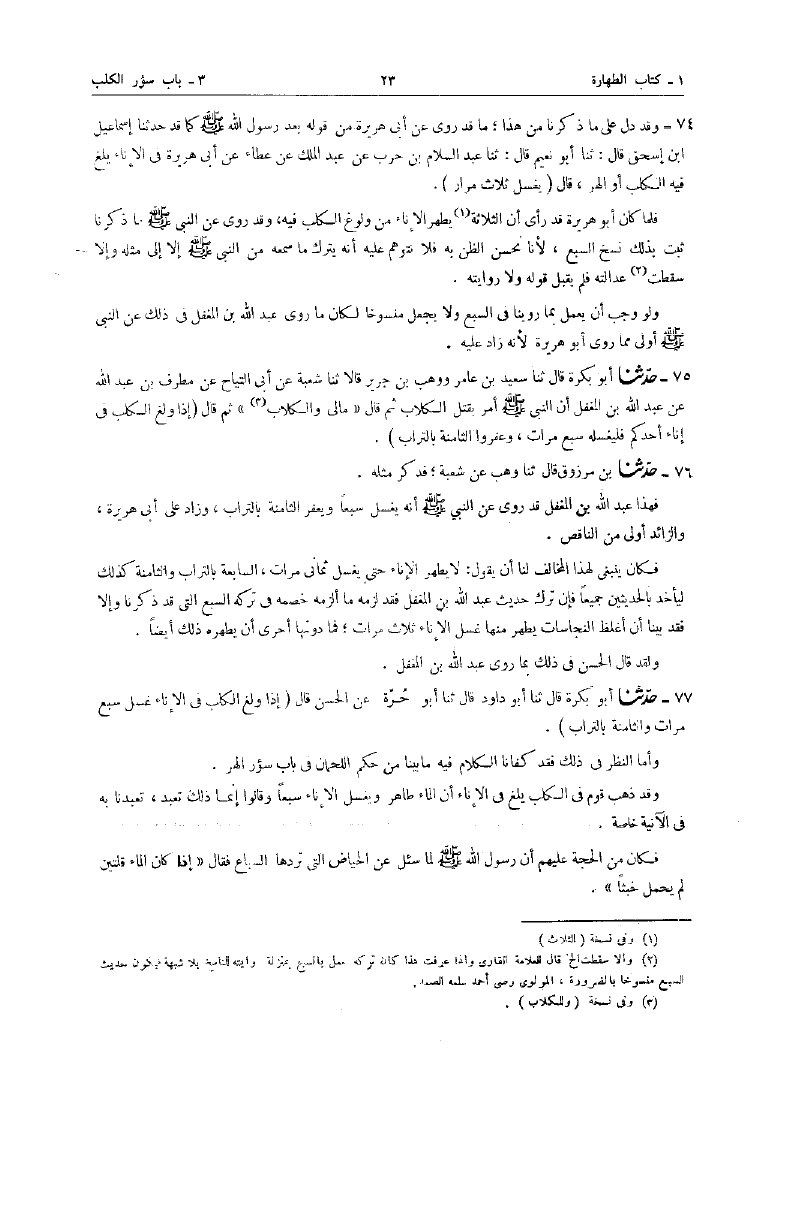 ١ ـ كتاب الطهارة ٢٣ ٣ ـ باب سؤر الكلب
٧٤ ـ وقد دل على ما ذكرنا من هذا ؛ ما قد روى عن أبى هريرة من قوله بعد رسول الله ﷺ كما قد حدثنا إسماعيل
ابن إسحق قال : ثنا أبو نعيم قال : ثنا عبد السلام بن حرب عن عبد الملك عن عطاء عن أبى هريرة فى الإناء يلغ
فيه الكلب أو الهر ، قال ( يغسل ثلاث مرار ) .
فلما كان أبو هريرة قد رأى أن الثلاثة(١) يطهر الإناء من ولوغ الكلب فيه، وقد روى عن النبى ﷺ ما ذكرنا
ثبت بذلك نسخ السبع ، لأنا نحسن الظن به فلا نتوهم عليه أنه يترك ما سمعه من النبى ﷺ إلا إلى مثله وإلا
سقطت(٢) عدالته فلم يقبل قوله ولا روايته .
ولو وجب أن يعمل بما روينا فى السبع ولا يجعل منسوخا لكان ما روى عبد الله بن المغفل فى ذلك عن النبى
ﷺ أولى مما روى أبو هريرة لأنه زاد عليه .
٧٥ ـ حدّثنا أبو بكرة قال ثنا سعيد بن عامر ووهب بن جرير قالا ثنا شعبة عن أبى التياح عن مطرف بن عبد الله
عن عبد الله بن المغفل أن النبى ﷺ أمر بقتل الكلاب ثم قال « مالى والكلاب(٣) » ثم قال (إذا ولغ الكلب فى
إناء أحدكم فليغسله سبع مرات ، وعفروا الثامنة بالتراب ) .
٧٦ ـ حدّثنا بن مرزوق قال ثنا وهب عن شعبة ؛ فذكر مثله .
فهذا عبد الله بن المغفل قد روى عن النبي ﷺ أنه يغسل سبعاً ويعفر الثامنة بالتراب ، وزاد على أبى هريرة ،
والزائد أولى من الناقص .
فكان ينبغى لهذا المخالف لنا أن يقول: لايطهر الإناء حتى يغسل ثمانى مرات ، السابعة بالتراب والثامنة كذلك
ليأخذ بالحديثين جميعاً فإن ترك حديث عبد الله بن المغفل فقد لزمه ما ألزمه خصمه فى تركه السبع التى قد ذكرنا وإلا
فقد بينا أن أغلظ النجاسات يطهر منها غسل الإناء ثلاث مرات ؛ فما دونها أحرى أن يطهره ذلك أيضاً .
ولقد قال الحسن فى ذلك بما روى عبد الله بن المغفل .
٧٧ ـ حدّثنا أبو بكرة قال ثنا أبو داود قال ثنا أبو حُرّة عن الحسن قال ( إذا ولغ الكلب فى الإناء غسل سبع
مرات والثامنة بالتراب ) .
وأما النظر فى ذلك فقد كفانا الكلام فيه مابينا من حكم اللحمان فى باب سؤر الهر .
وقد ذهب قوم فى الكلب يلغ فى الإناء أن الماء طاهر ويغسل الإناء سبعاً وقالوا إنما ذلك تعبد ، تعبدنا به
فى الآنية خاصة .
فكان من الحجة عليهم أن رسول الله ﷺ لما سئل عن الحياض التى تردها السباع فقال « إذا كان الماء قلتين
لم يحمل خبثاً » .
(١) وفى نسخة ( الثلاث )
(٢) وإلا سقطت الخ قال العلامة القارى وإذا عرفت هذا كان تركه عمل بالسبع بمنزلة روايته للناسخ بلا شبهة فيكون حديث
السبع منسوخا بالضرورة ، المولوى وصى أحمد سلمه الصمد .
(٣) وفى نسخة ( وللكلاب ) .